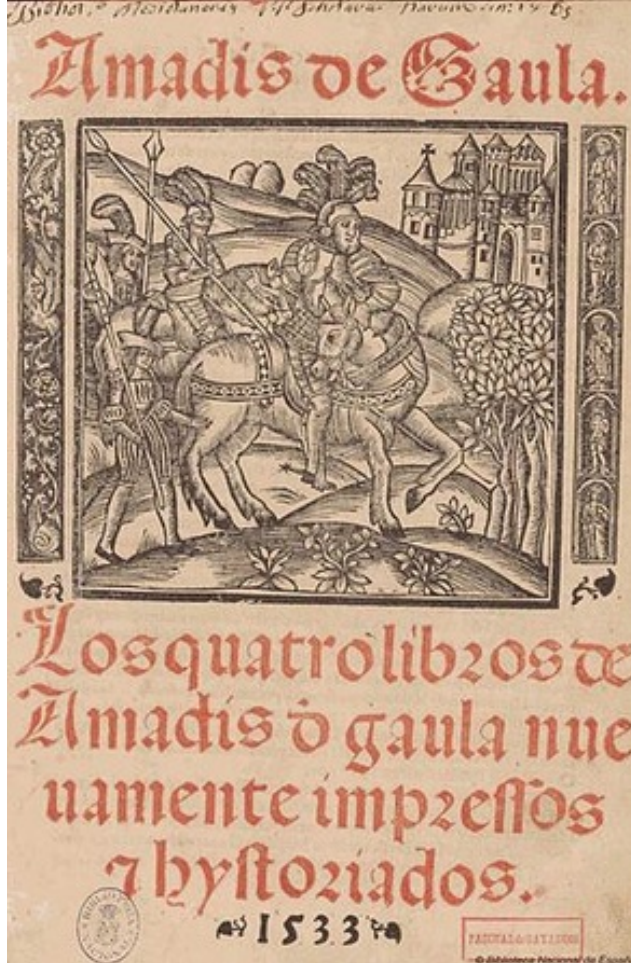 Amadis de Gaula.
Los quatro libros de
Amadis d̄ gaula nue
uamente impressos
⁊ hystoriados.
1533
BIBLIOTECA
NACIONAL
PASCUAL de GAYANGOS
© Biblioteca Nacional de España